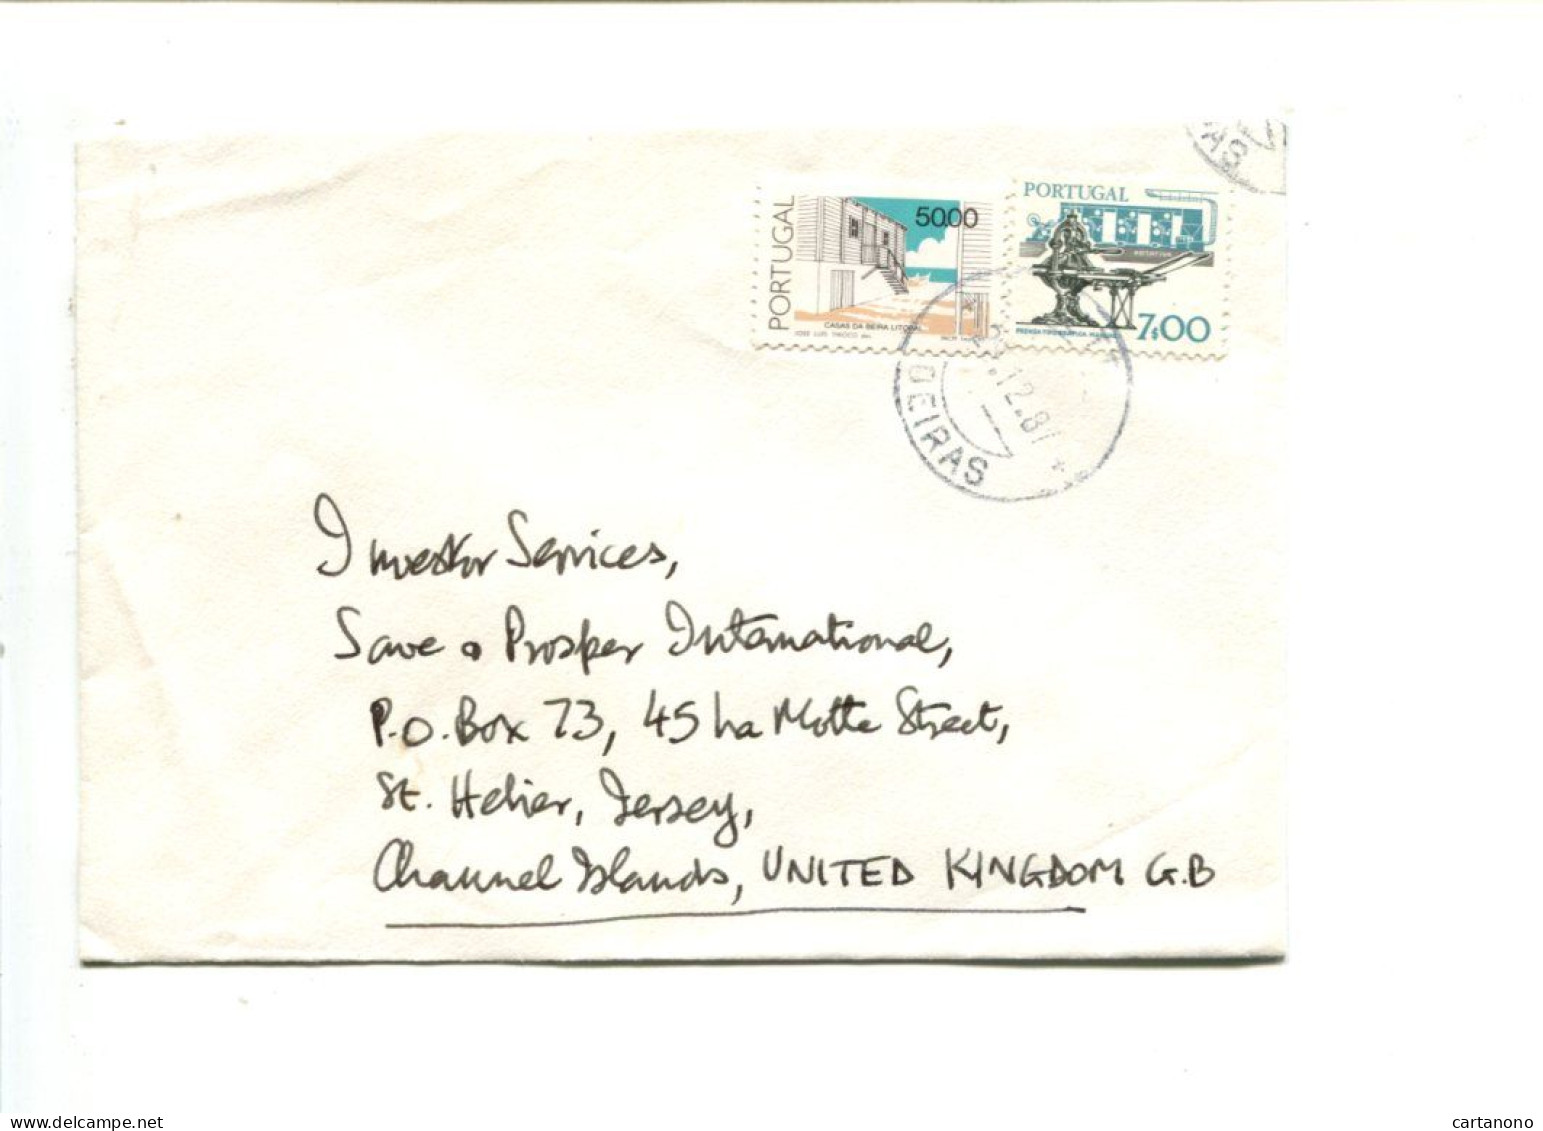 AS
PORTUGAL
5000
CASAS DA BEIRA LITORAL
JOSE LUIS TINOCO
PORTUGAL
ROTATIVA
PRENSA TIPOGRÁFICA MANUAL
7$00
.12.87
OEIRAS
Investor Services,
Save & Prosper International,
P.O. Box 73, 45 La Motte Street,
St. Helier, Jersey,
Channel Islands, UNITED KINGDOM G.B
www.delcampe.net
cartanono